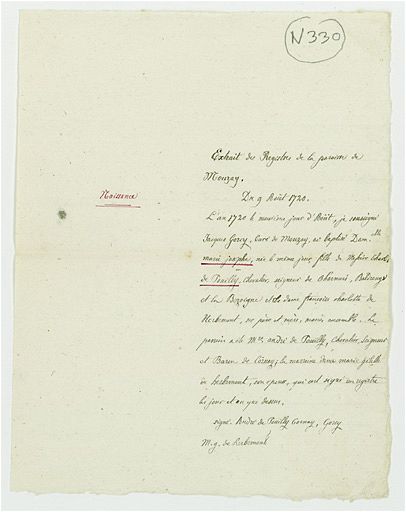 N 330
Extrait des Registres de la paroisse de
Mouzay.
Naissance
Du 9 Août 1720.
L'an 1720 le neuvième jour d'Août, je soussigné
Jacques Gorcy, Curé de Mouzay, ai baptisé Dam.lle
marie josephe, née le même jour fille de Messire Charles
de Pouilly, chevalier, seigneur de
et la et de dame françoise charlotte de
herbemont, ses père et mère, mariés ensemble. Le
parein a été Mre. andré de Pouilly, Chevalier, Seigneur
et Baron de Cornay; la maraine dame marie
de herbemont, son épouse, qui ont signé au registre
les jour et an que dessus.
signé. André de Pouilly Cornay, Gorcy
M. g. de herbemont